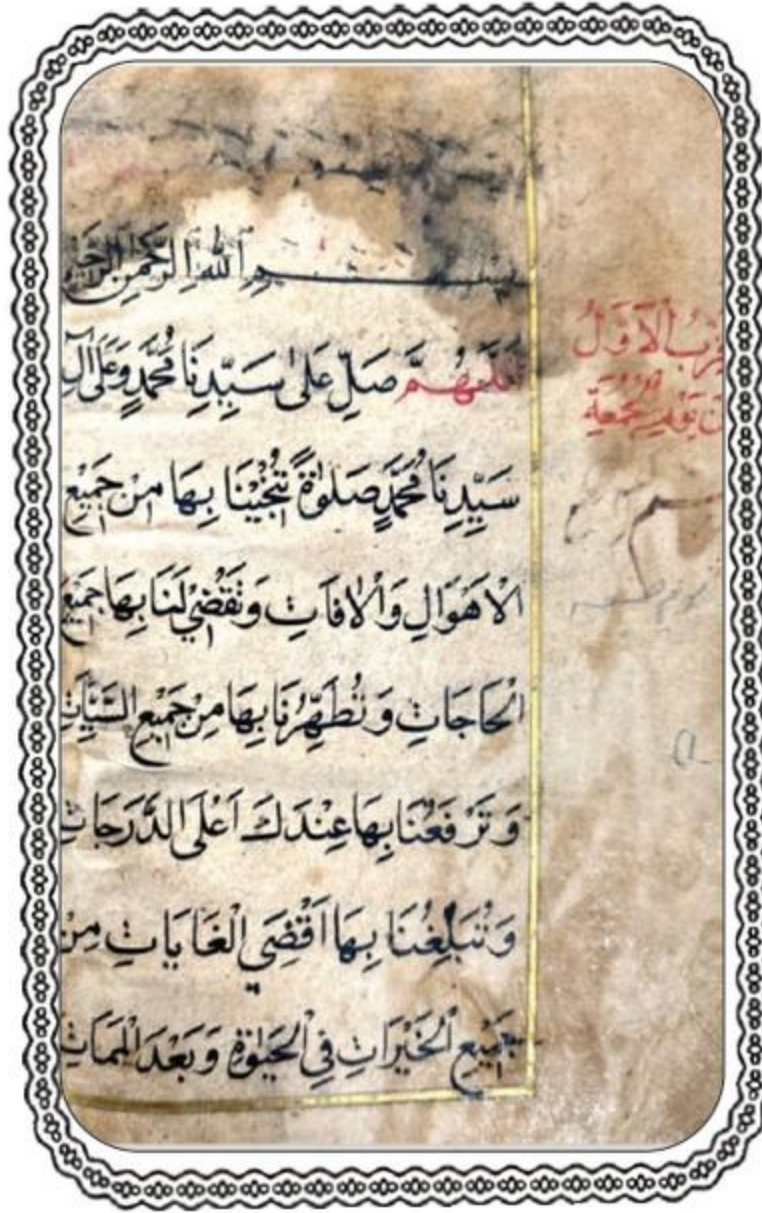 بِسْمِ ٱللَّهِ ٱلرَّحْمٰنِ
اَللّٰهُمَّ صَلِّ عَلٰى سَيِّدِنَا مُحَمَّدٍ وَعَلٰى اٰلِ
سَيِّدِنَا مُحَمَّدٍ صَلٰوةً تُنْجِيْنَا بِهَا مِنْ جَمِيْعِ
الْاَهْوَالِ وَالْاٰفَاتِ وَتَقْضِيْ لَنَا بِهَا جَمِيْعَ
الْحَاجَاتِ وَتُطَهِّرُنَا بِهَا مِنْ جَمِيْعِ السَّيِّاٰتِ
وَتَرْفَعُنَا بِهَا عِنْدَكَ اَعْلَى الدَّرَجَاتِ
وَتُبَلِّغُنَا بِهَا اَقْصَى الْغَايَاتِ مِنْ
جَمِيْعِ الْخَيْرَاتِ فِي الْحَيٰوةِ وَبَعْدَ الْمَمَاتِ
الْاَوَّلُ